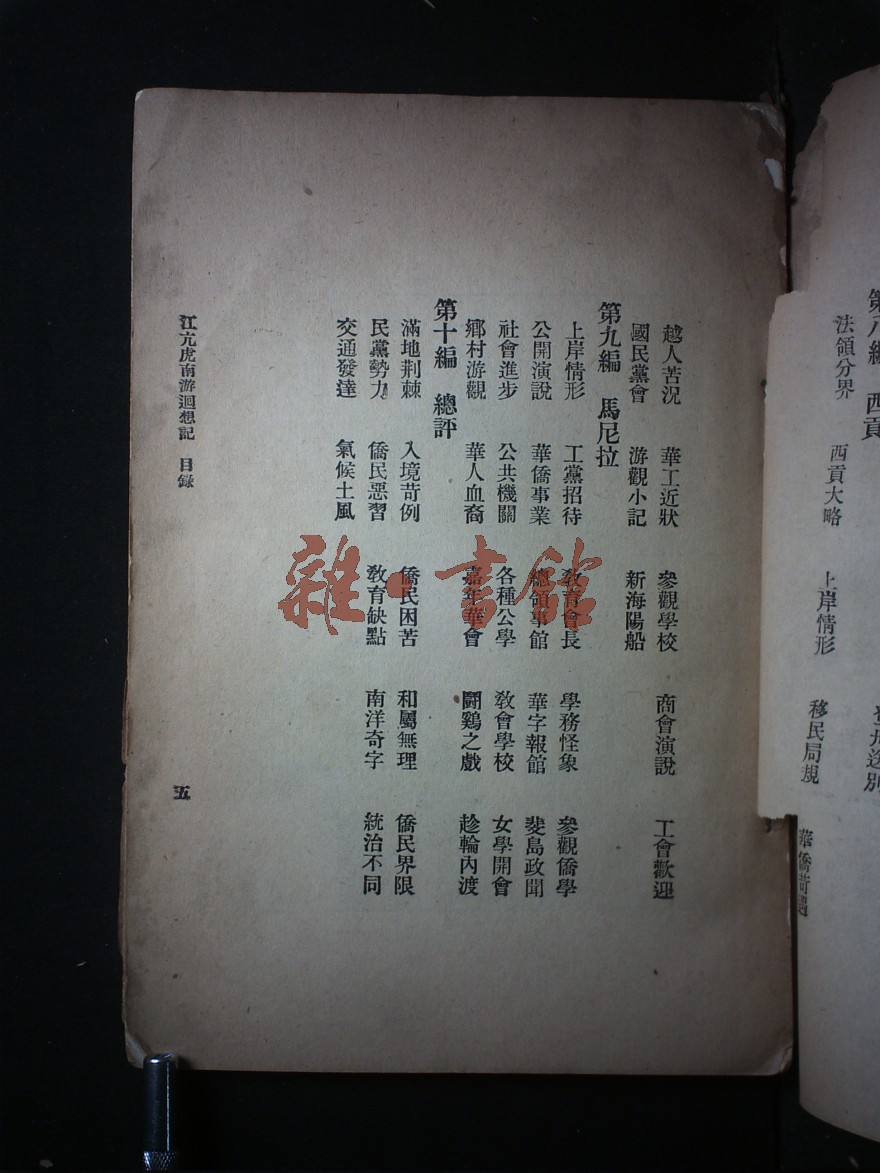 第八編　西貢
法領分界　西貢大略　上岸情形　移民局規　華僑苛遇
越人苦況　華工近狀　參觀學校　商會演說　工會歡迎
國民黨會　游觀小記　新海陽船
第九編　馬尼拉
上岸情形　工黨招待　教育會長　學務怪象　參觀僑學
公開演說　華僑事業　總領事館　華字報館　斐島政聞
社會進步　公共機關　各種公學　教會學校　女學開會
鄉村游觀　華人血裔　嘉年華會　鬪鷄之戲　趁輪內渡
第十編　總評
滿地荆棘　入境苛例　僑民困苦　和屬無理　僑民界限
民黨勢力　僑民惡習　教育缺點　南洋奇字　統治不同
交通發達　氣候土風
江亢虎南游迴想記　目錄
五
雜·書館